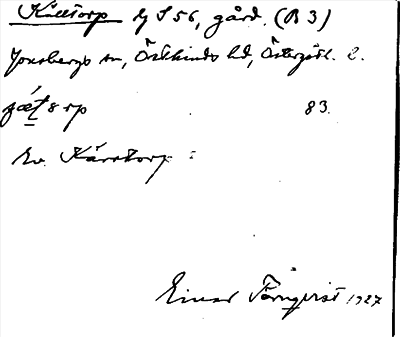 Källtorp hg S 56, gård. (B 3)
Jonsbergs sn, Östkinds hd, Östergötl. l.
çæ̀ʈɐrp 83.
Ev. Kärrtorp :
Einar Törnqvist 1927